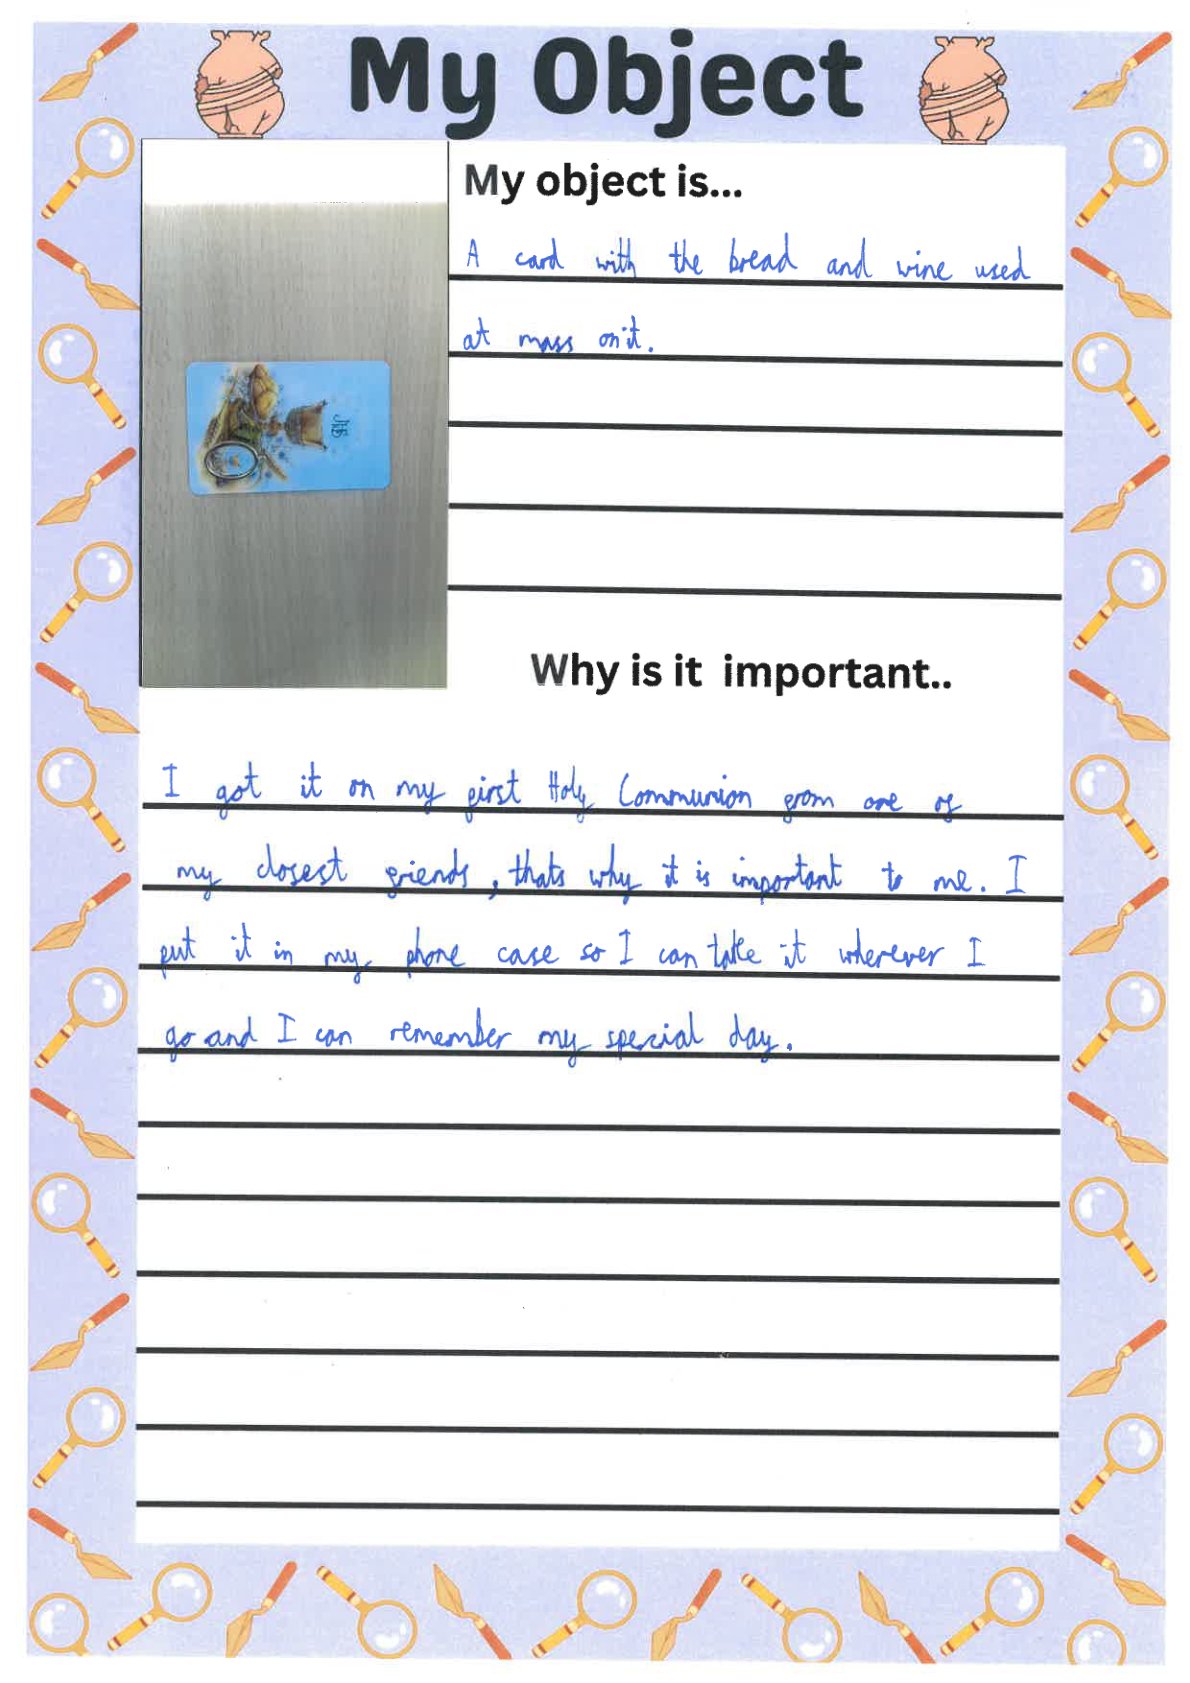 My Object
My object is...
A card with the bread and wine used
at mass on it.
JHS
Why is it important..
I got it on my first Holy Communion from one of
my closest friends, thats why it is important to me. I
put it in my phone case so I can take it wherever I
go and I can remember my special day.